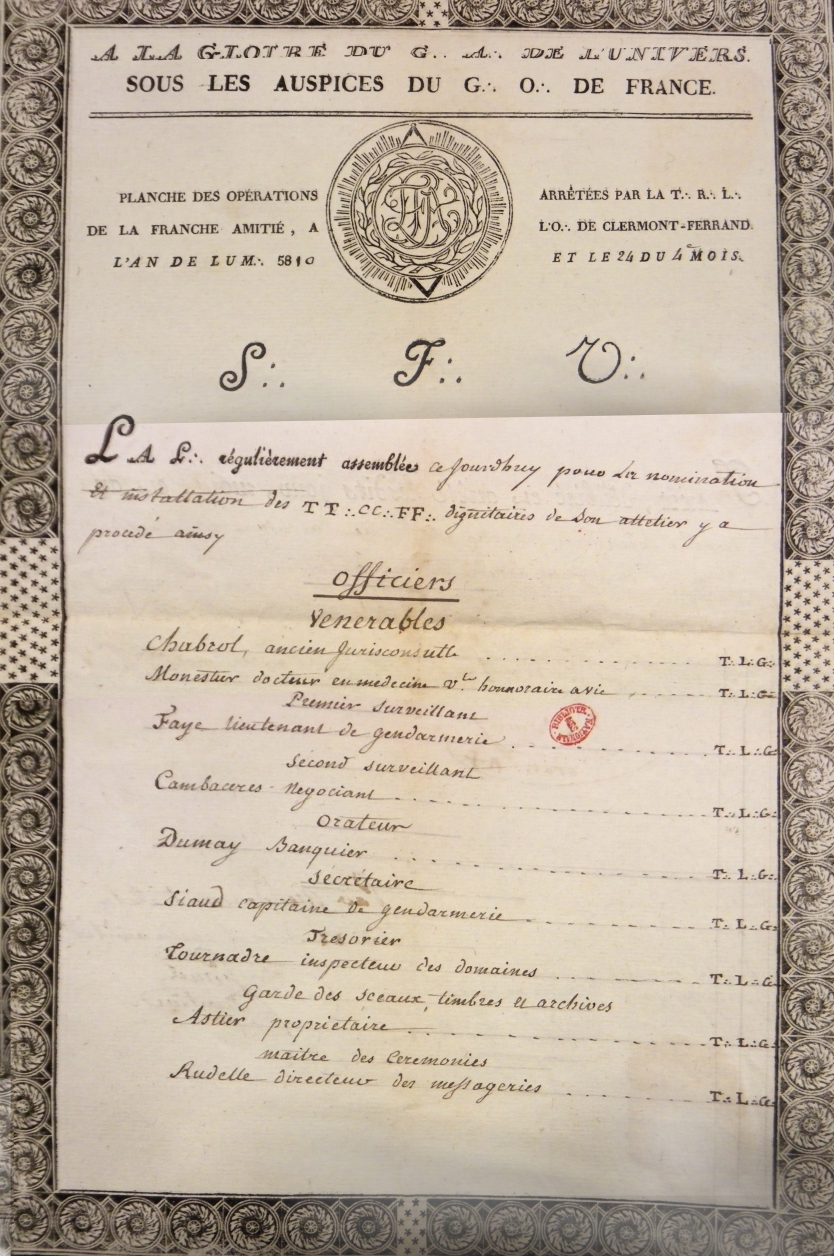 A LA GLOIRE DU G.·. A.·. DE L'UNIVERS.
SOUS LES AUSPICES DU G.·. O.·. DE FRANCE.
PLANCHE DES OPÉRATIONS ARRÊTÉES PAR LA T.·. R.·. L.·.
DE LA FRANCHE AMITIÉ, A L'O.·. DE CLERMONT-FERRAND.
L'AN DE LUM.·. 5810 ET LE 24 DU 4e MOIS.
S.·. F.·. V.·.
LA L.·. régulièrement assemblée cejourdhuy pour la nomination
et installation des TT.·.CC.·.FF.·. dignitaires de son attelier y a
procedé ainsy
officiers
venerables
Chabrol, ancien Jurisconsulte T.·.L.·.G.·.
Monestier docteur en medecine v.ble honnoraire a vie T.·.L.·.G.·.
Premier surveillant
Faye lieutenant de gendarmerie T.·.L.·.G.·.
Second surveillant
Cambaceres negociant T.·.L.·.G.·.
Orateur
Dumay Banquier T.·.L.·.G.·.
Secretaire
Siaud capitaine de gendarmerie T.·.L.·.G.·.
Tresorier
Tournadre inspecteur des domaines T.·.L.·.G.·.
Garde des sceaux, timbres et archives
Astier proprietaire T.·.L.·.G.·.
maitre des Ceremonies
Rudelle directeur des messageries T.·.L.·.G.·.